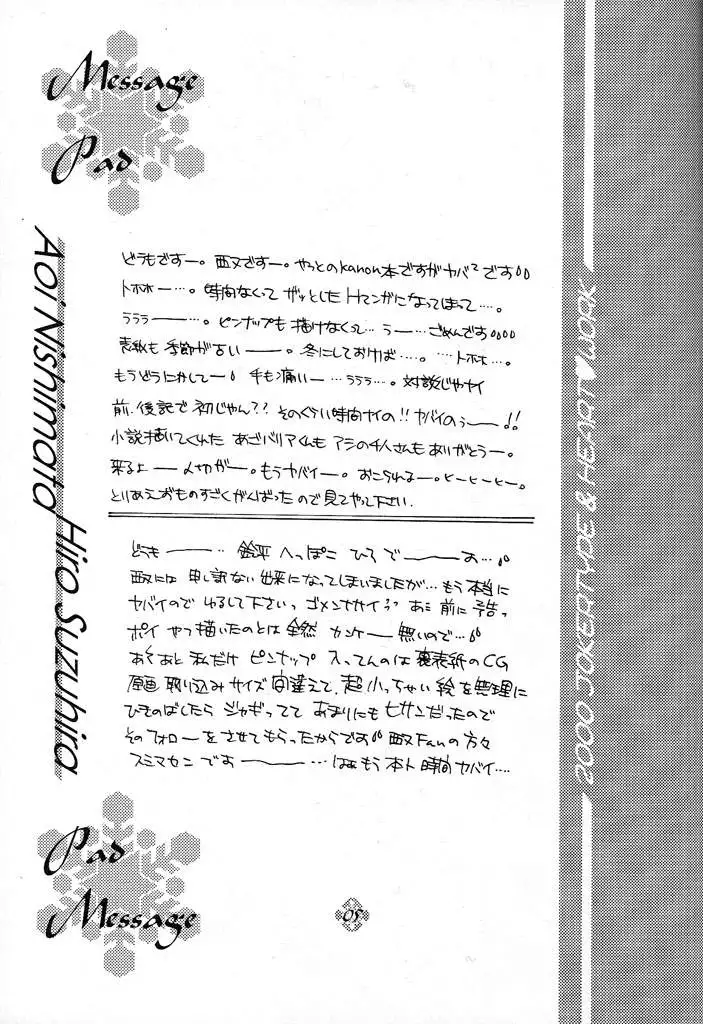 Message
Pad
Aoi Nishimata
Hiro Suzuhira
どうもですー。西又ですー。やっとのkanon本ですがヤバ²です
トホホー…。時間なくって ザッとした Hマンガになってしまって…。
ラララー――…。ピンナップも描けなくって… うー… ごめんです
表紙も 季節が古い――。冬にしておけば…。…トホホ…。
もうどうにかしてー! 手も痛いー …ラララ…。対談じゃナイ
前、後記で 初じゃん?? そのぐらい時間ナイの!! ヤバイのぅ―!!
小説描いてくれた あざバリアくんも アシの千人さんも ありがとうー。
来るよ ――〆切がー。もうヤバイー。おこられるー。ヒーヒーヒー。
とりあえおものすごくがんばったので見てやって下さい.
どうも―――… 鈴平 へっぽこ ひろ で―――お…
西又には 申し訳ない 出来になってしまいましたが… もう 本当に
ヤバイので ゆるして下さいっ ゴメンナサイ あぅ 前に 予告っ
ポイ やつ描いたのとは 全然 カンケー 無いので…
あぅあと 私だけ ピンナップ 入ってんのは 裏表紙のCG
原画 取り込み サイズ 間違えて、超 小っちゃい 絵 を 無理に
ひきのばしたら ジャギってて あまりにも ヒサンだったので
その フォロー を させて もらったからです 西又Fan の 方々
スミマセン です ――――…はぁ もう 本ト 時間 ヤバイ…
Pad
Message
05
2000 JOKERTYPE & HEART♥WORK